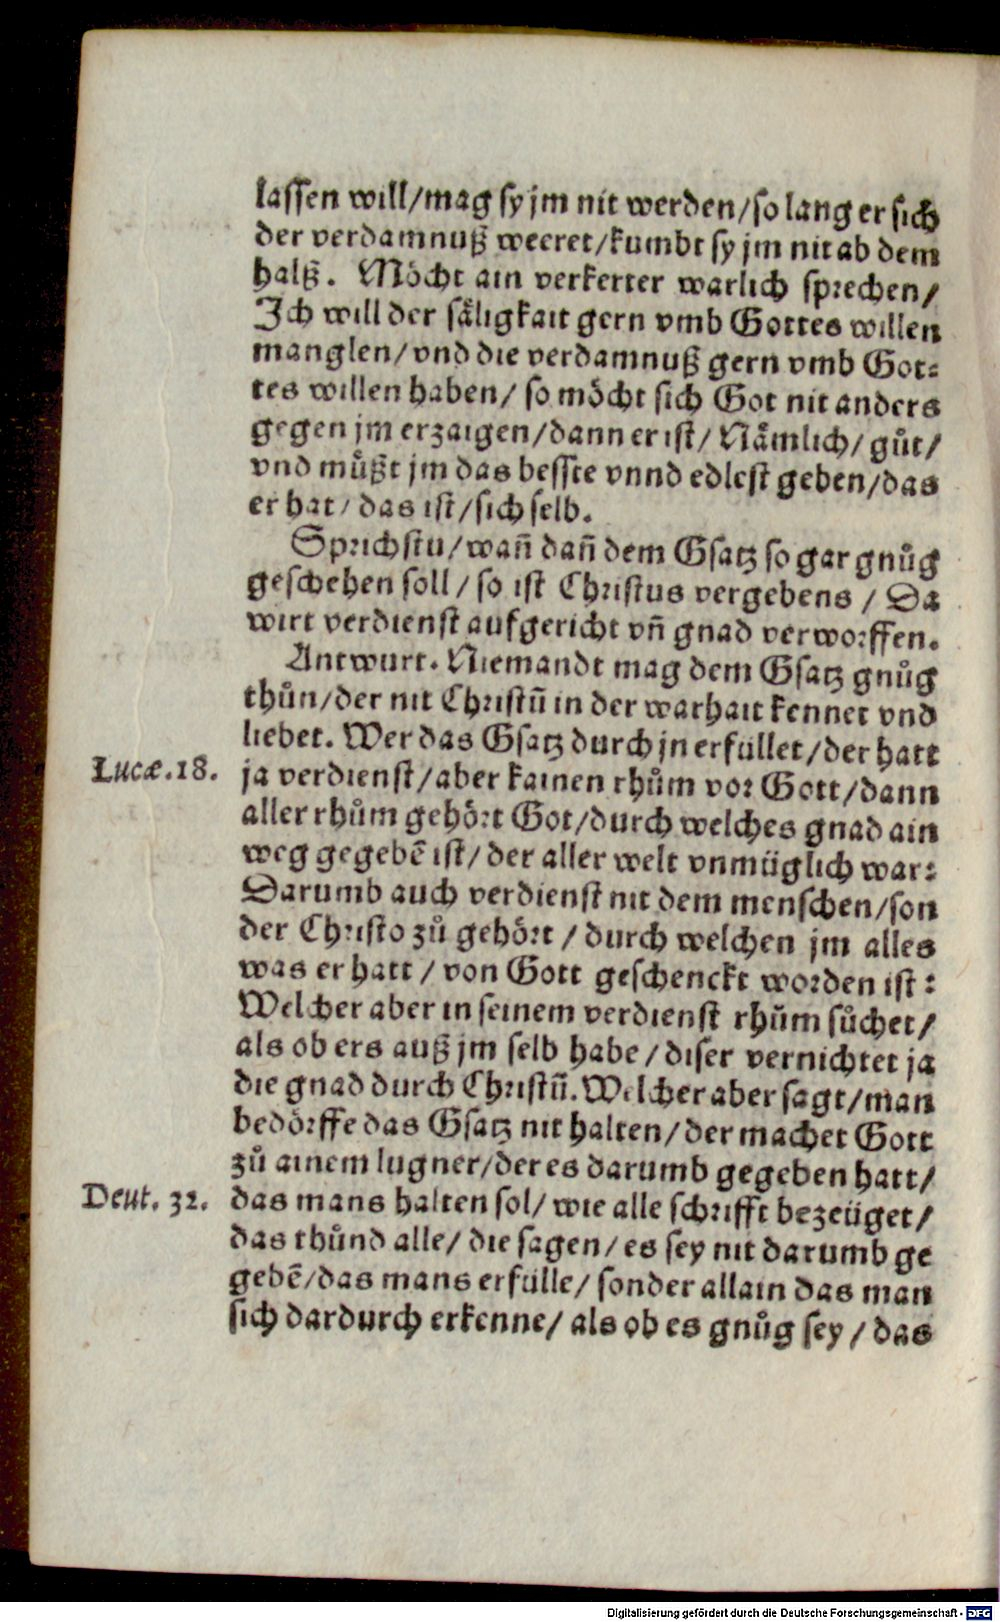 lassen will/mag sy jm nit werden/so lang er sich
der verdamnuß weeret/kumbt sy jm nit ab dem
halß. Möcht ain verkerter warlich sprechen/
Ich will der såligkait gern vmb Gottes willen
manglen/vnd die verdamnuß gern vmb Got⸗
tes willen haben/ so möcht sich Got nit anders
gegen jm erzaigen/dann er ist/ Nåmlich/ gůt/
vnd můßt jm das besste vnnd edlest geben/das
er hat/ das ist/sich selb.
Sprichstu/wañ dañ dem Gsatz so gar gnůg
geschehen soll/ so ist Christus vergebens / Da
wirt verdienst aufgericht vñ gnad verworffen.
Antwurt. Niemandt mag dem Gsatz gnůg
thůn/der nit Christũ in der warhait kennet vnd
liebet. Wer das Gsatz durch jn erfüllet/der hatt
Lucæ.18.
ja verdienst/aber kainen rhům vor Gott/dann
aller rhům gehört Got/durch welches gnad ain
weg gegebẽ ist/ der aller welt vnmüglich war:
Darumb auch verdienst nit dem menschen/son
der Christo zů gehört / durch welchen jm alles
was er hatt / von Gott geschenckt worden ist:
Welcher aber in seinem verdienst rhům sůchet/
als ob ers auß jm selb habe/ diser vernichtet ja
die gnad durch Christũ. Welcher aber sagt/man
bedörffe das Gsatz nit halten/der machet Gott
zů ainem lugner/der es darumb gegeben hatt/
Deut. 32.
das mans halten sol/ wie alle schrifft bezeüget/
das thůnd alle/ die sagen/ es sey nit darumb ge
gebẽ/das mans erfülle/ sonder allain das man
sich dardurch erkenne/ als ob es gnůg sey / das
Digitalisierung gefördert durch die Deutsche Forschungsgemeinschaft - DFG